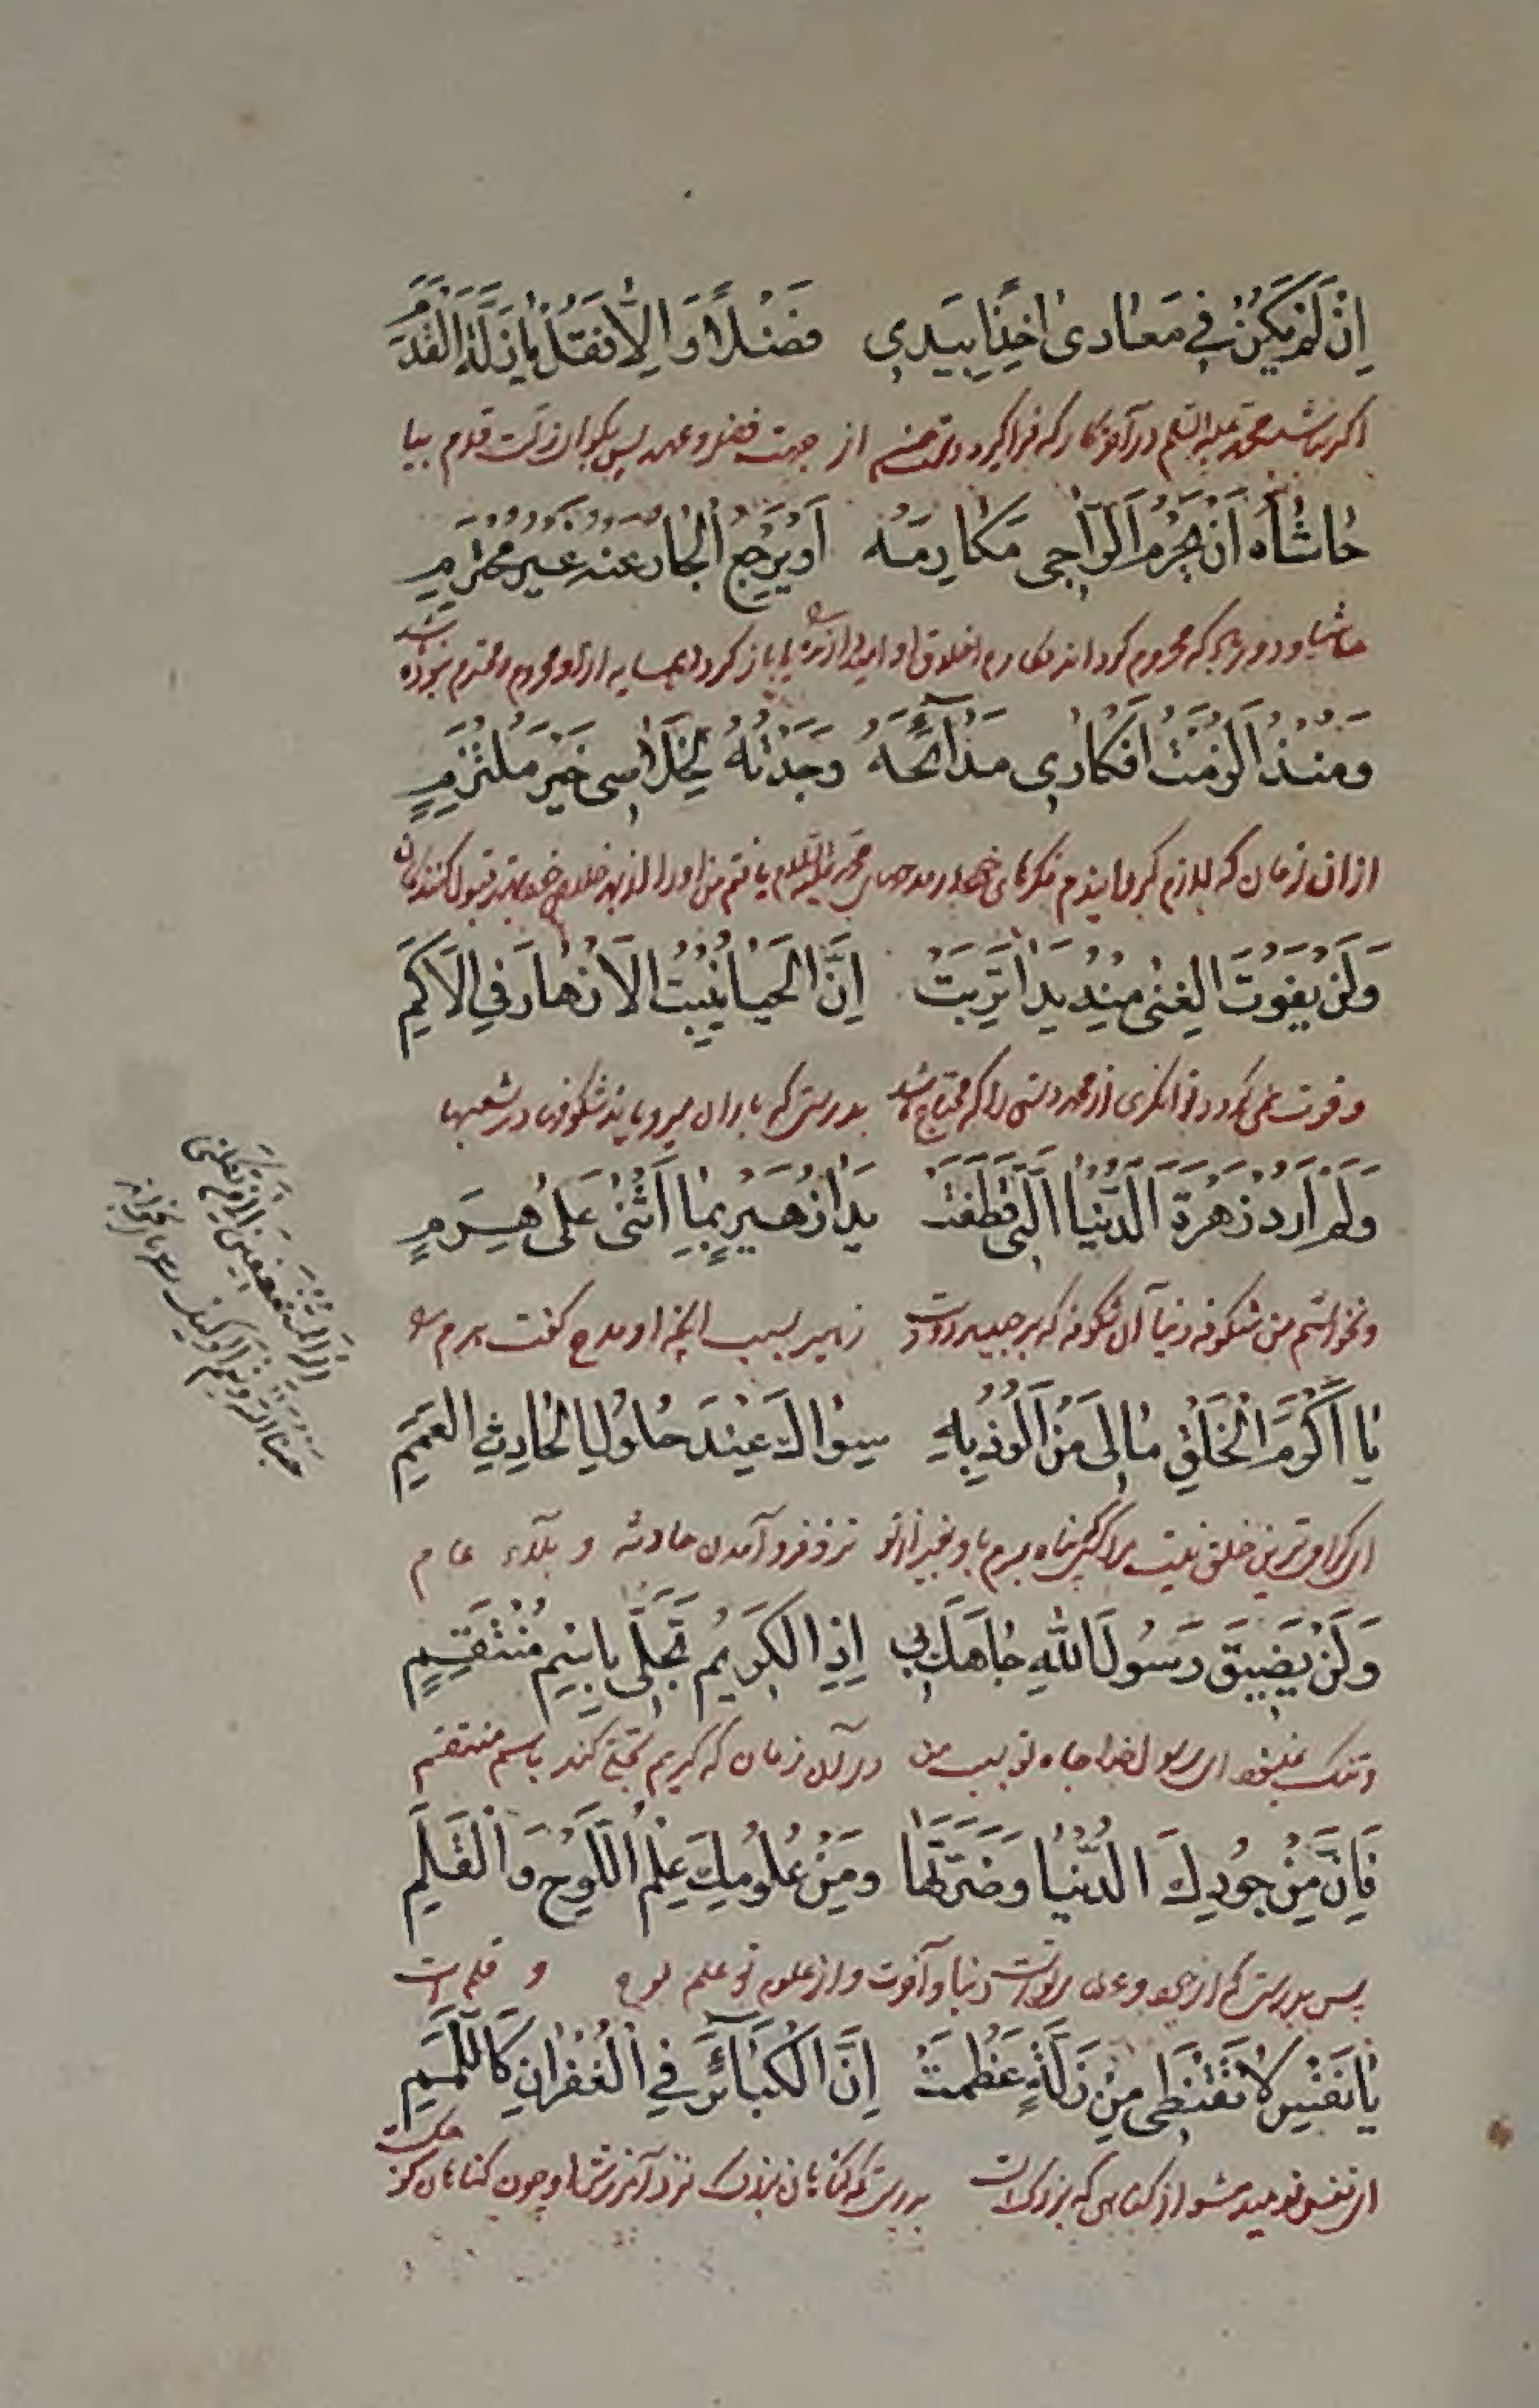 اِنْ لَمْ يَكُنْ فِي مَعَادِى اٰخِذًا بِيَدِى فَضْلًا وَاِلَّا فَقُلْ يَا زَلَّةَ الْقَدَمِ
اكر نباشد محمد عليه السلام در آخر كار كه فرا كيرد دست من از جهت فضل و عهد پس بكو اى زلت قدم بيا
حَاشَاهُ اَنْ يَحْرُمَ الرَّاجِى مَكَارِمَهُ اَوْ يَرْجِعَ الْجَارُ عَنْهُ غَيْرَ مُحْتَرَمِ
حاشا و دور كه محروم كرداند مكارم اخلاق او يا باز كردد همسايه از او محروم و محترم نبوده باشد
وَمُنْذُ اَلْزَمْتُ اَفْكَارِى مَدَآئِحَهُ وَجَدْتُهُ لِخَلَاصِى خَيْرَ مُلْتَزِمِ
از ان زمان كه لازم كردانيدم فكرهاى خود در مدحهاى محمد عليه السلام يافتم من او را از بهر خلاص خود بهتر قبول كنندكان
وَلَنْ يَفُوتَ الْغِنٰى مِنْهُ يَدًا تَرِبَتْ اِنَّ الْحَيَا يُنْبِتُ الْاَزْهَارَ فِى الْاَكَمِ
و فوت نمى كردد توانكرى از محمد دستى را كه محتاج باشد بدرستى كه باران ميروياند شكوفها در پشتها
وَلَمْ اُرِدْ زَهْرَةَ الدُّنْيَا الَّتِى قَطَفَتْ يَدَا زُهَيْرٍ بِمَا اَثْنٰى عَلٰى هَرِمِ
و نخواستم من شكوفه دنيا آن شكوفه كه برچيد دو دست زهير بسبب آنچه او مدح كفت هرم را
يَا اَكْرَمَ الْخَلْقِ مَالِى مَنْ اَلُوذُ بِهِ سِوَاكَ عِنْدَ حُلُولِ الْحَادِثِ الْعَمِمِ
اى كرامى ترين خلق نيست مرا كسى پناه برم باو بغير از تو نزد فرو آمدن حادثه و بلاء عام
وَلَنْ يَضِيقَ رَسُولَ اللهِ جَاهُكَ بِى اِذَا الْكَرِيمُ تَجَلّٰى بِاسْمِ مُنْتَقِمِ
و تنك نميشود اى رسول خدا جاه تو بسبب من در آن زمان كه كريم تجلى كند باسم منتقم
فَاِنَّ مِنْ جُودِكَ الدُّنْيَا وَضَرَّتَهَا وَمِنْ عُلُومِكَ عِلْمُ اللَّوْحِ وَالْقَلَمِ
پس بدرستى كه از جود و عطاى تو است دنيا و آخرت و از علوم تو علم لوح و قلم است
يَا نَفْسِ لَا تَقْنَطِى مِنْ زَلَّةٍ عَظُمَتْ اِنَّ الْكَبَآئِرَ فِى الْغُفْرَانِ كَاللَّمَمِ
اى نفس نوميد مشو از كناهى كه بزرك است بدرستى كه كناهان بزرك نزد آمرزش او چون كناهان